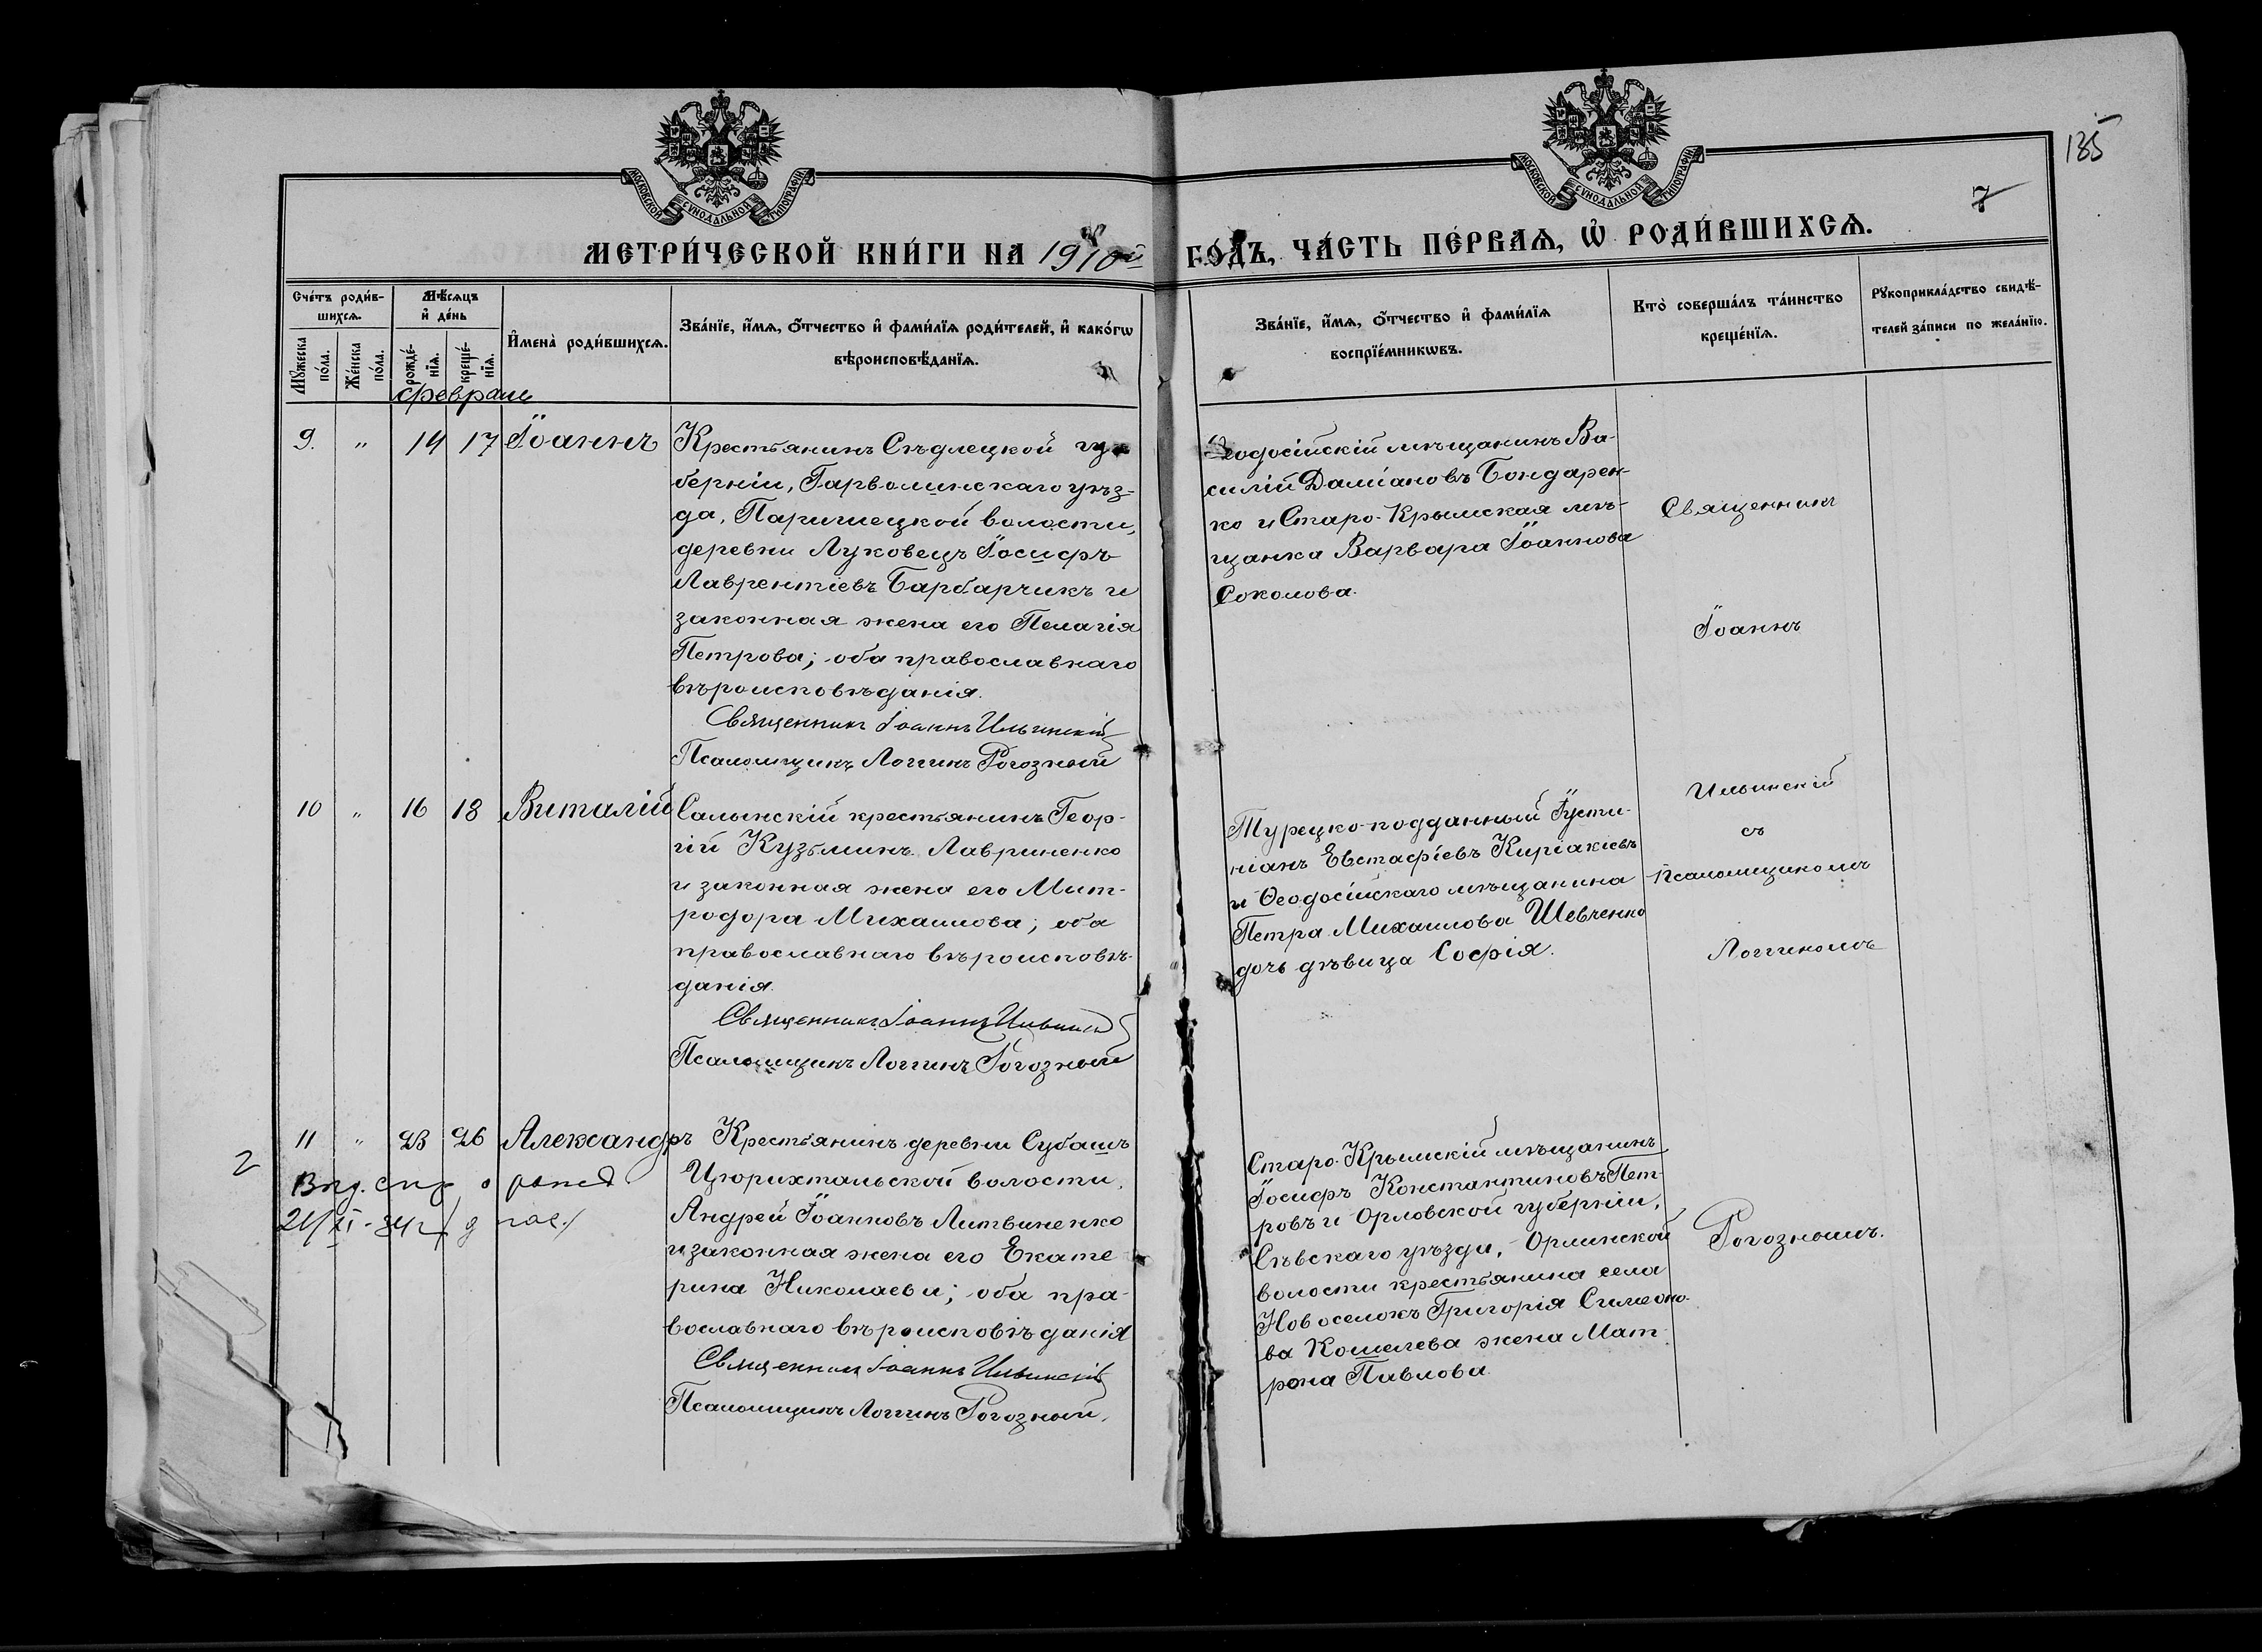 135
7
МОСКОВСКОЙ СУНОДАЛЬНОЙ ТИПОГРАФІИ
МОСКОВСКОЙ СУНОДАЛЬНОЙ ТИПОГРАФІИ
МЕТРИ́ЧЕСКОЙ КНИ́ГИ НА 1910й ГО́ДЪ, ЧА́СТЬ ПЕ́РВАѦ, Ѡ҆ РОДИ́ВШИХСѦ.
Сче́тъ роди́в-
шихсѧ.
Мꙋ́жеска по́ла.
Же́нска по́ла.
Мѣ́сѧцъ
и҆ де́нь
рожде́-
нїѧ.
креще́-
нїѧ.
И҆мена̀ роди́вшихсѧ.
Зва́нїе, и҆́мѧ, ѻ҆́тчество и҆ фами́лїѧ роди́телей, и҆ како́гѡ
вѣроисповѣ́данїѧ.
Зва́нїе, и҆́мѧ, ѻ҆́тчество и҆ фами́лїѧ
воспрїе́мникѡвъ.
Кто̀ соверша́лъ та́инство
креще́нїѧ.
Рꙋкоприкла́дство свидѣ́-
телей за́писи по жела́нїю.
февраль
9. " 14 17 Іоаннъ
Крестьянинъ Сѣдлецкой гу-
берніи, Гарволинскаго уѣз-
да, Паришецкой волости,
деревни Луковецъ Іосифъ
Лаврентіевъ Барбарчикъ и
законная жена его Пелагія
Петрова; оба православнаго
вѣроисповѣданія.
Священникъ Іоаннъ Ильинскій
Псаломщикъ Логгинъ Рогозный
Ѳеодосійскій мѣщанинъ Ва-
силій Даміановъ Бондарен-
ко и Старо-Крымская мѣ-
щанка Варвара Іоаннова
Соколова.
Священникъ
Іоаннъ
Ильинскій
съ
псаломщикомъ
Логгиномъ
Рогознымъ.
10 " 16 18 Виталій
Салынскій крестьянинъ Геор-
гій Кузьминъ Лавриненко
и законная жена его Мит-
родора Михаилова; оба
православнаго вѣроисповѣ-
данія.
Священникъ Іоаннъ Ильинскій
Псаломщикъ Логгинъ Рогозный
Турецко-подданный Іусти-
ніанъ Евстафіевъ Киріакіевъ
и Ѳеодосійскаго мѣщанина
Петра Михаилова Шевченко
дочь дѣвица Софія.
11 " 23 26 Александръ
2
Выд. спр. о рожд.
21/II-34г.
Крестьянинъ деревни Субашъ
Цюрихтальской волости,
Андрей Іоанновъ Литвиненко
и законная жена его Екате
рина Николаева; оба пра-
вославнаго вѣроисповѣданія
Священникъ Іоаннъ Ильинскій
Псаломщикъ Логгинъ Рогозный.
Старо-Крымскій мѣщанинъ
Іосифъ Константиновъ Пет-
ровъ и Орловской губерніи,
Сѣвскаго уѣзда, Орлинской
волости крестьянина села
Новоселокъ Григорія Симеоно-
ва Кошелева жена Мат-
рона Павлова.